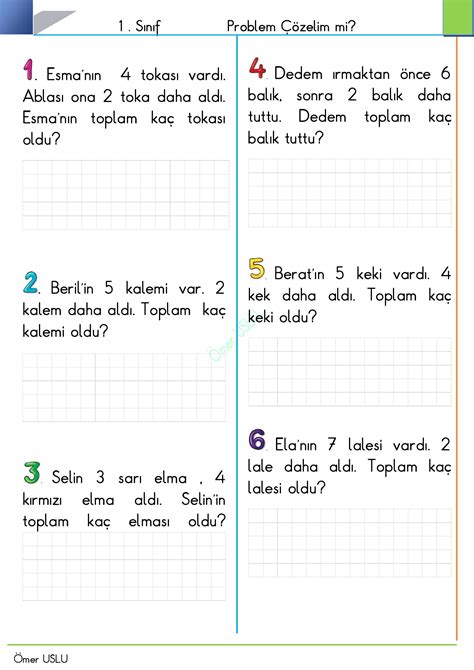 1. Sınıf Problem Çözelim mi?
1. Esma'nın 4 tokası vardı.
Ablası ona 2 toka daha aldı.
Esma'nın toplam kaç tokası
oldu?
2. Beril'in 5 kalemi var. 2
kalem daha aldı. Toplam kaç
kalemi oldu?
3. Selin 3 sarı elma , 4
kırmızı elma aldı. Selin'in
toplam kaç elması oldu?
4. Dedem ırmaktan önce 6
balık, sonra 2 balık daha
tuttu. Dedem toplam kaç
balık tuttu?
5. Berat'ın 5 keki vardı. 4
kek daha aldı. Toplam kaç
keki oldu?
6. Ela'nın 7 lalesi vardı. 2
lale daha aldı. Toplam kaç
lalesi oldu?
Ömer USLU
Ömer USLU